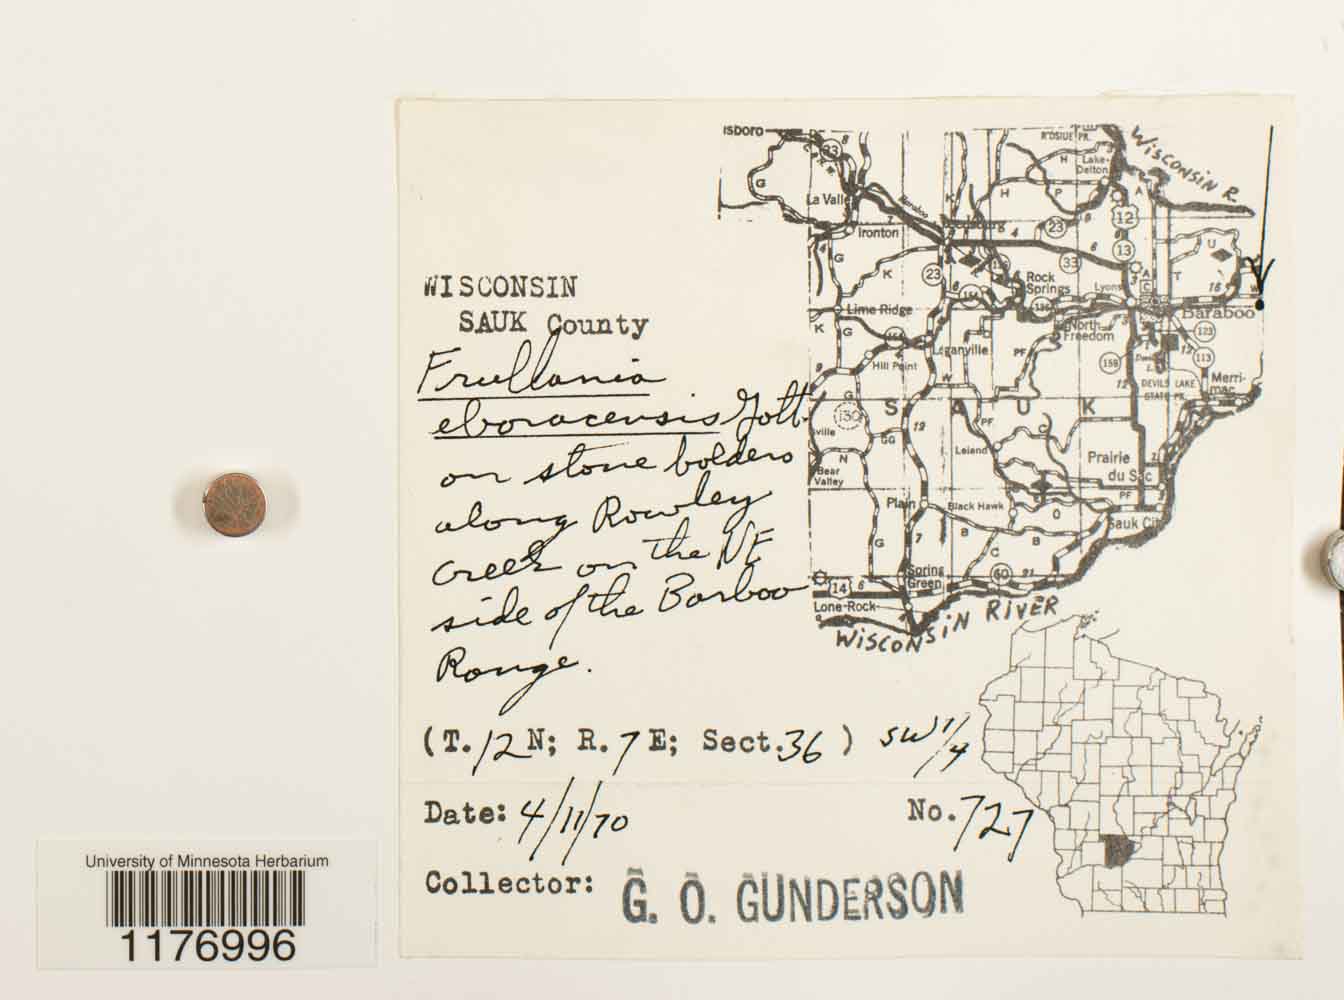 WISCONSIN
SAUK County
Frullania
eboracensis Gott.
on stone bolders
along Rowley
Creek on the NE
side of the Barboo
Range.
(T. 12 N; R. 7 E; Sect. 36 ) SW 1/4
Date: 4/11/70
No. 727
Collector: G. O. GUNDERSON
University of Minnesota Herbarium
1176996
WISCONSIN R.
Lake-
Delton
La Valle
Ironton
Rock
Springs
Lyons
Baraboo
Lime Ridge
North
Freedom
Loganville
Hill Point
DEVILS LAKE
STATE PK.
Merri-
mac
S A U K
Leland
Prairie
du Sac
Bear
Valley
Plain
Black Hawk
Sauk City
Spring
Green
Lone-Rock
WISCONSIN RIVER